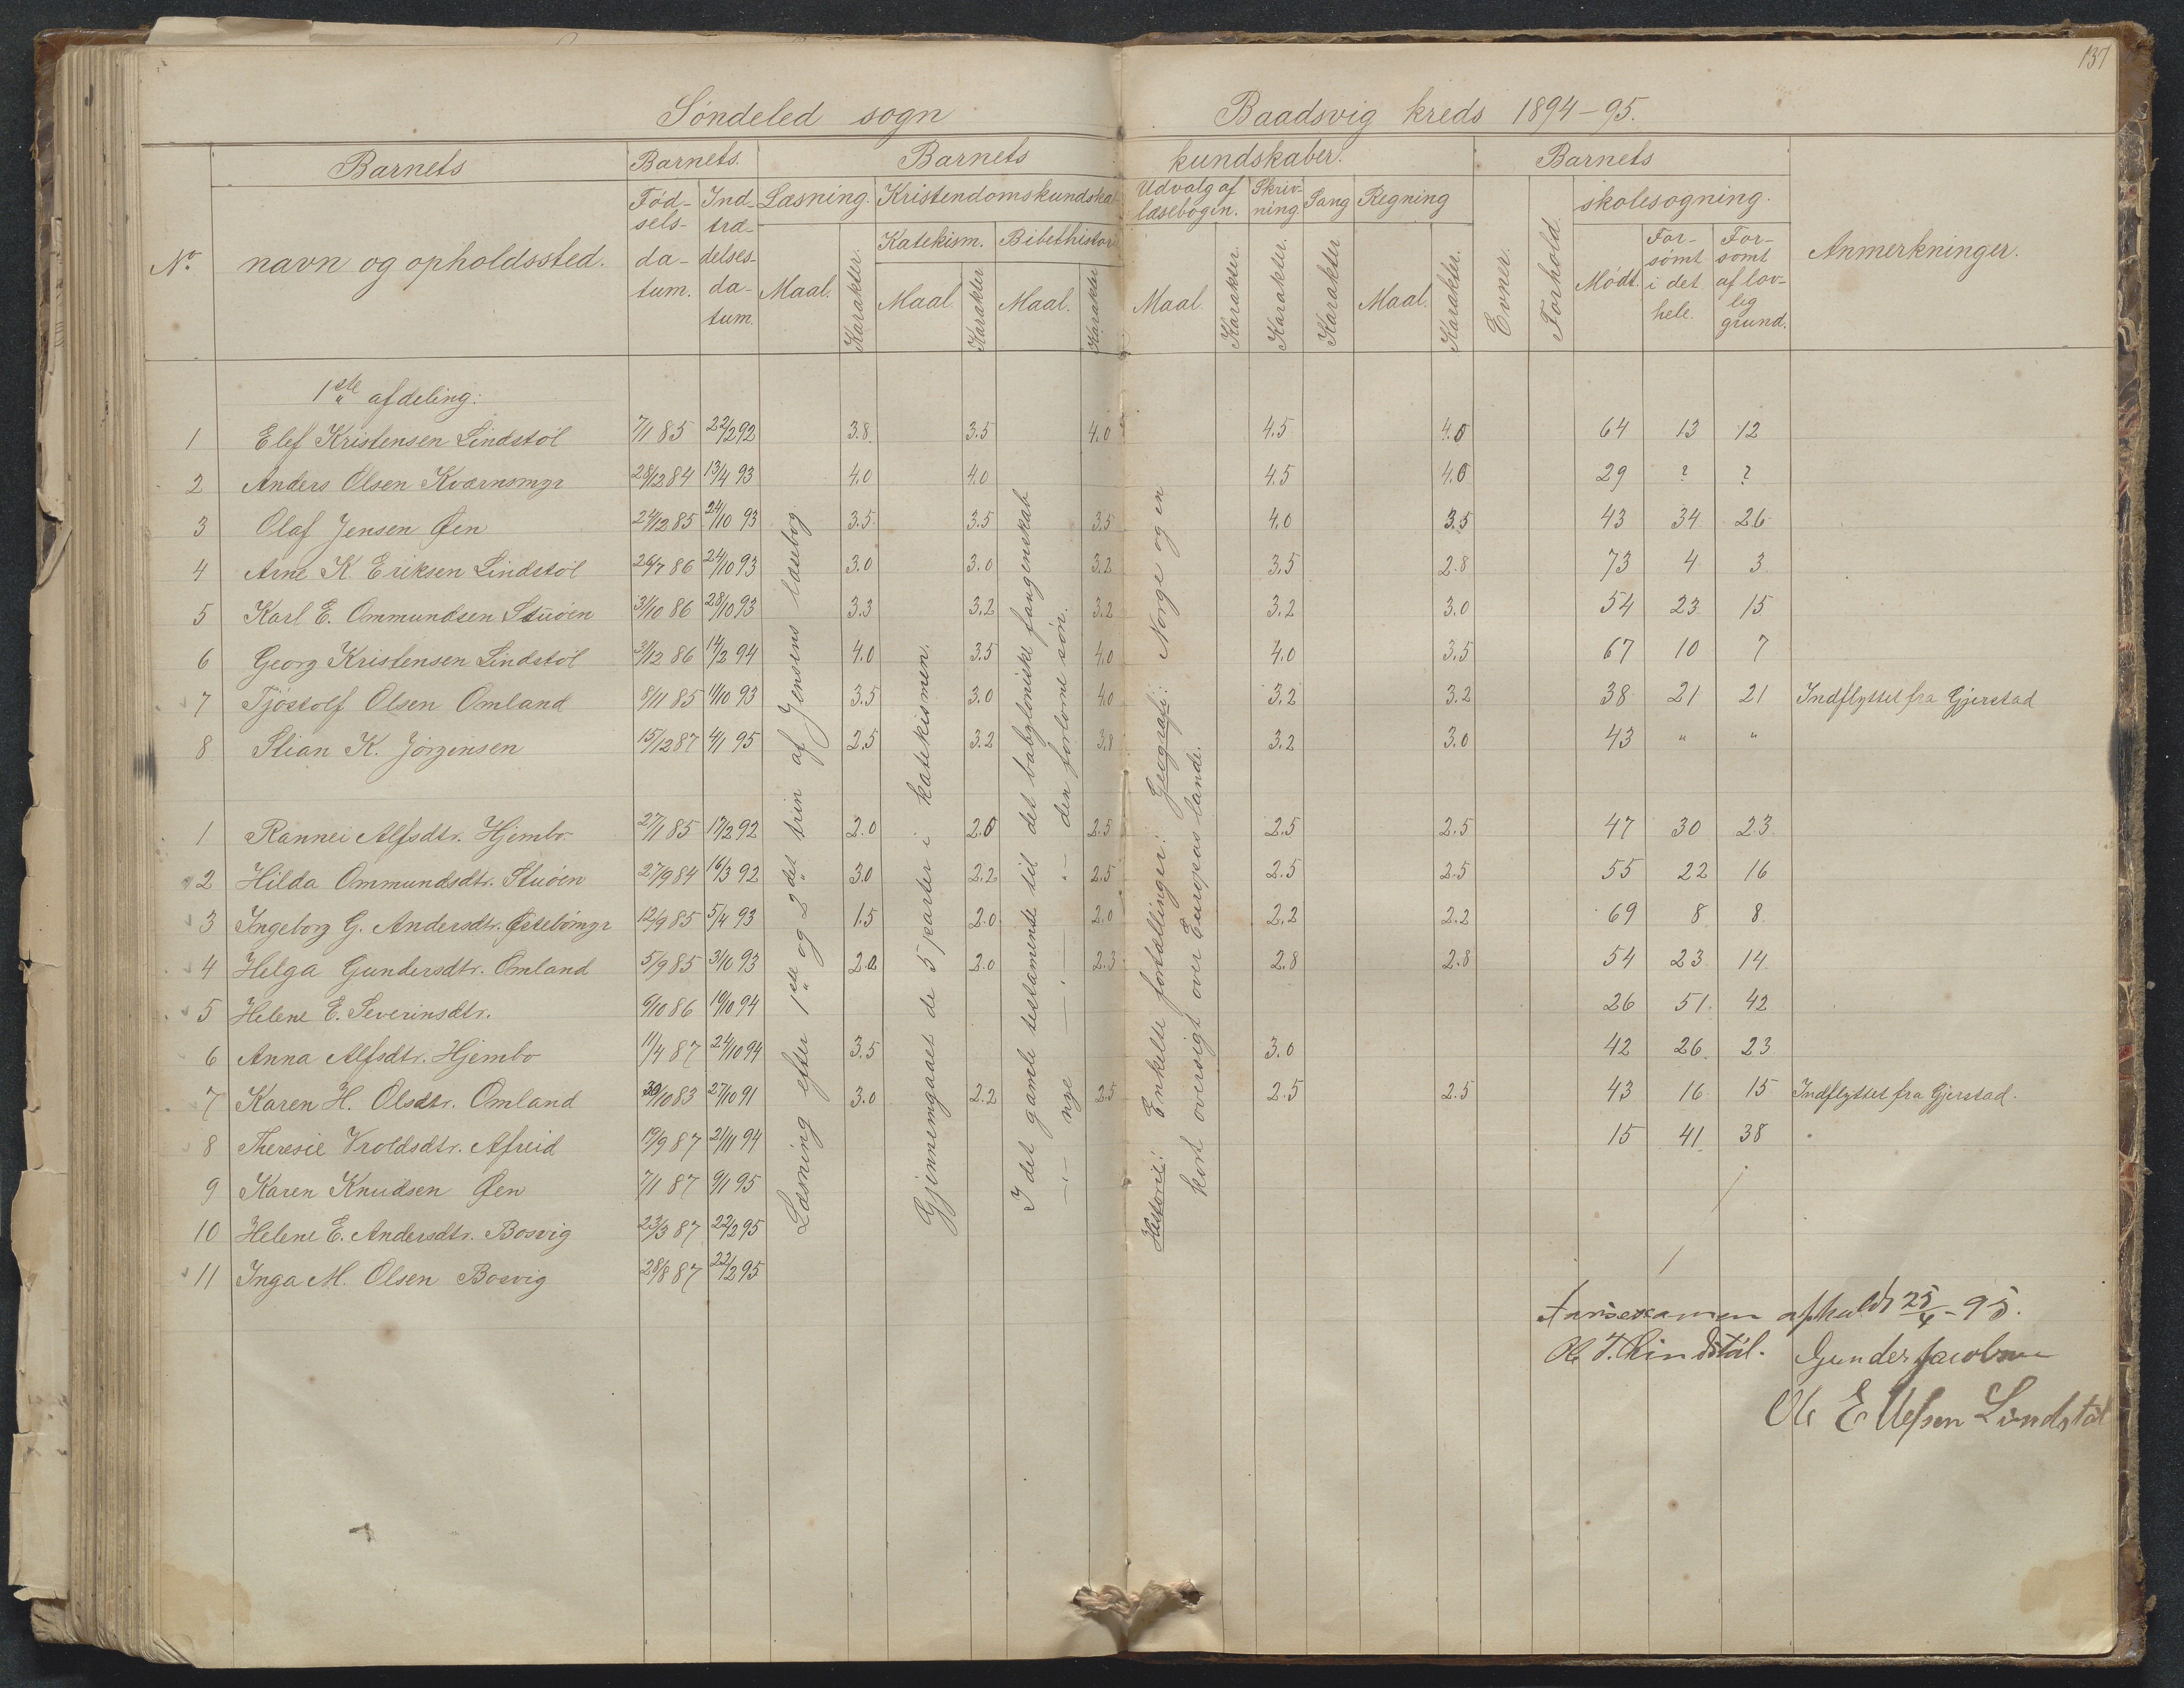 137
Søndeled sogn Baadsvig kreds 1894-95.
Barnets Barnets. Barnets kundskaber. Barnets
No. navn og opholdssted. Fødselsdatum. Indtrædelsesdatum. Læsning. Kristendomskundskab Udvalg af læsebogen. Skrivning. Sang Regning Evner. Forhold. skolesøgning. Anmerkninger.
Katekism. Bibelhistorie
Maal. Karakter. Maal. Karakter. Maal. Karakter Maal. Karakter. Karakter. Karakter Maal. Karakter. Mødt. Forsømt i det hele. Forsømt af lovlig grund.
1ste afdeling:
1 Elef Kristensen Lindstøl 7/1 85 22/2 92 3.8. 3.5 4.0 4.5 4.0 64 13 12
2 Anders Olsen Kværnsmyr 28/12 84 13/4 93 4.0 4.0 4.5 4.0 29 ? ?
3 Olaf Jensen Øen 24/12 85 24/10 93 3.5 3.5 3.5 4.0 3.5 43 34 26
4 Arne K. Eriksen Lindstøl 26/7 86 24/10 93 3.0 3.0 3.2 3.5 2.8 73 4 3
5 Karl E. Ommundsen Stuøen 31/10 86 28/10 93 3.3 3.2 3.2 3.2 3.0 54 23 15
6 Georg Kristensen Lindstøl 31/12 86 14/2 94 4.0 3.5 4.0 4.0 3.5 67 10 7
7 Tjøstolf Olsen Omland 8/11 85 11/10 93 3.5 3.0 4.0 3.2 3.2 38 21 21 Indflyttet fra Gjerstad
8 Stian K. Jørgensen 15/12 87 4/1 95 2.5 3.2 3.8 3.2 3.0 43 " "
1 Rannei Alfsdtr. Hjembo 27/1 85 17/2 92 2.0 2.0 2.5 2.5 2.5 47 30 23
2 Hilda Ommundsdtr. Stuøen 27/9 84 16/3 92 3.0 2.2 2.5 2.5 2.5 55 22 16
3 Ingeborg G. Andersdtr. Østebømyr 12/9 85 5/4 93 1.5 2.0 2.0 2.2 2.2 69 8 8
4 Helga Gundersdtr. Omland 5/9 85 3/10 93 2.0 2.0 2.3 2.8 2.8 54 23 14
5 Helene E. Severinsdtr. 6/10 86 19/10 94 26 51 42
6 Anna Alfsdtr. Hjembo 11/4 87 24/10 94 3.5 3.0 42 26 23
7 Karen H. Olsdtr. Omland 30/10 83 27/10 91 3.0 2.2 2.5 2.5 2.5 43 16 15 Indflyttet fra Gjerstad.
8 Theresie Vroldsdtr. Afreid 19/9 87 21/11 94 15 41 38
9 Karen Knudsen Øen 7/1 87 9/1 95
10 Helene E. Andersdtr. Bosvig 23/3 87 22/2 95
11 Inga M. Olsen Bosvig 28/8 87 22/2 95
Læsning efter 1ste og 2det trin af Jensens læsebog
Gjennemgaaet de 5 parter i katekismen.
I det gamle testamente til det babyloniske fangenskab
-"- nye -"- -"- den forlorne søn.
Historie: Enkelte fortællinger. Geografi: Norge og en
kort oversigt over Europas lande.
Aarsexamen afholdt 25/4-95.
Ole T. Lindstøl. Gunder Jacobsen
Ole Ellefsen Lindstøl